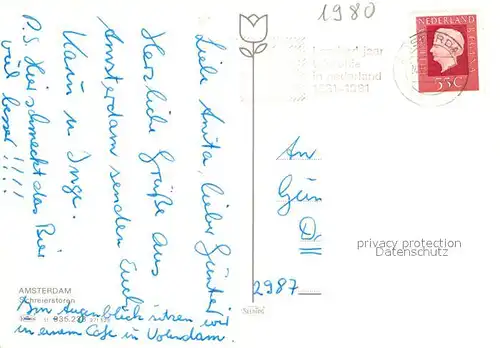 1980
NEDERLAND
55c
honderd jaar
telefonie
in nederland
1881-1981
Liebe Anita, lieber Günter
Herzliche Grüße aus
Amsterdam senden Euch
Karin u Inge.
P.S. Hier schmeckt das Bier
viel besser!!!!
An
Gün
D
2987
privacy protection
Datenschutz
AMSTERDAM
Schreierstoren
Am Augenblick sitzen wir
in einem Cafe in Volendam.